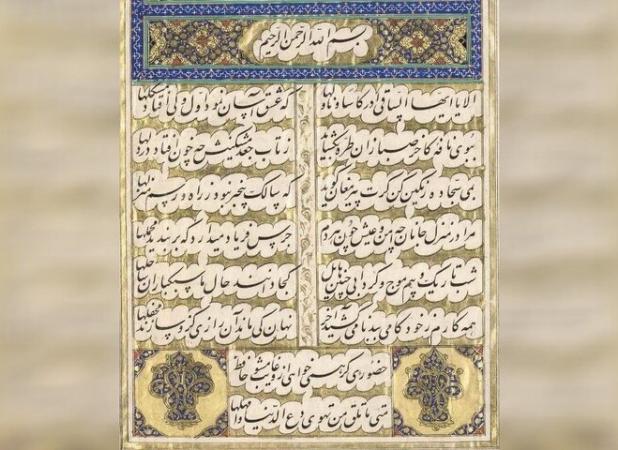 بسم الله الرحمن الرحیم
الا یا ایها الساقی ادر کاسا و ناولها که عشق آسان نمود اول ولی افتاد مشکلها
ببوی نافه کاخر صبا زان طره بگشاید ز تاب جعد مشکینش چه خون افتاد در دلها
بمی سجاده رنگین کن گرت پیر مغان گوید که سالک بیخبر نبود ز راه و رسم منزلها
مرا در منزل جانان چه امن و عیش چون هر دم جرس فریاد میدارد که بربندید محملها
شب تاریک و بیم موج و گردابی چنین هایل کجا دانند حال ما سبکباران ساحلها
همه کارم ز خود کامی ببدنامی کشید آخر نهان کی ماند آن رازی کزو سازند محفلها
حضوری گر همی خواهی ازو غایب مشو حافظ
متی ما تلق من تهوی دع الدنیا و اهملها